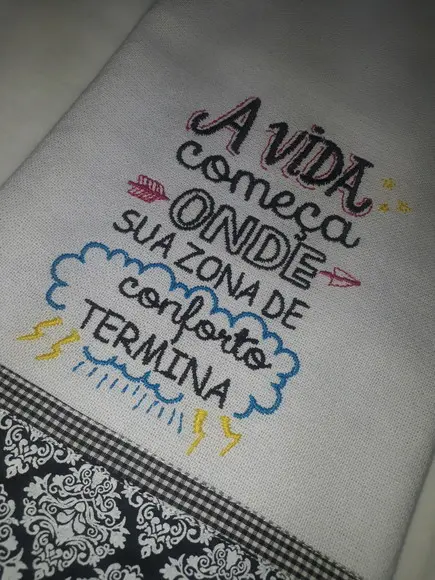 A ViDA
começa
ONDE
SUA ZONA DE
conforto
TERMINA